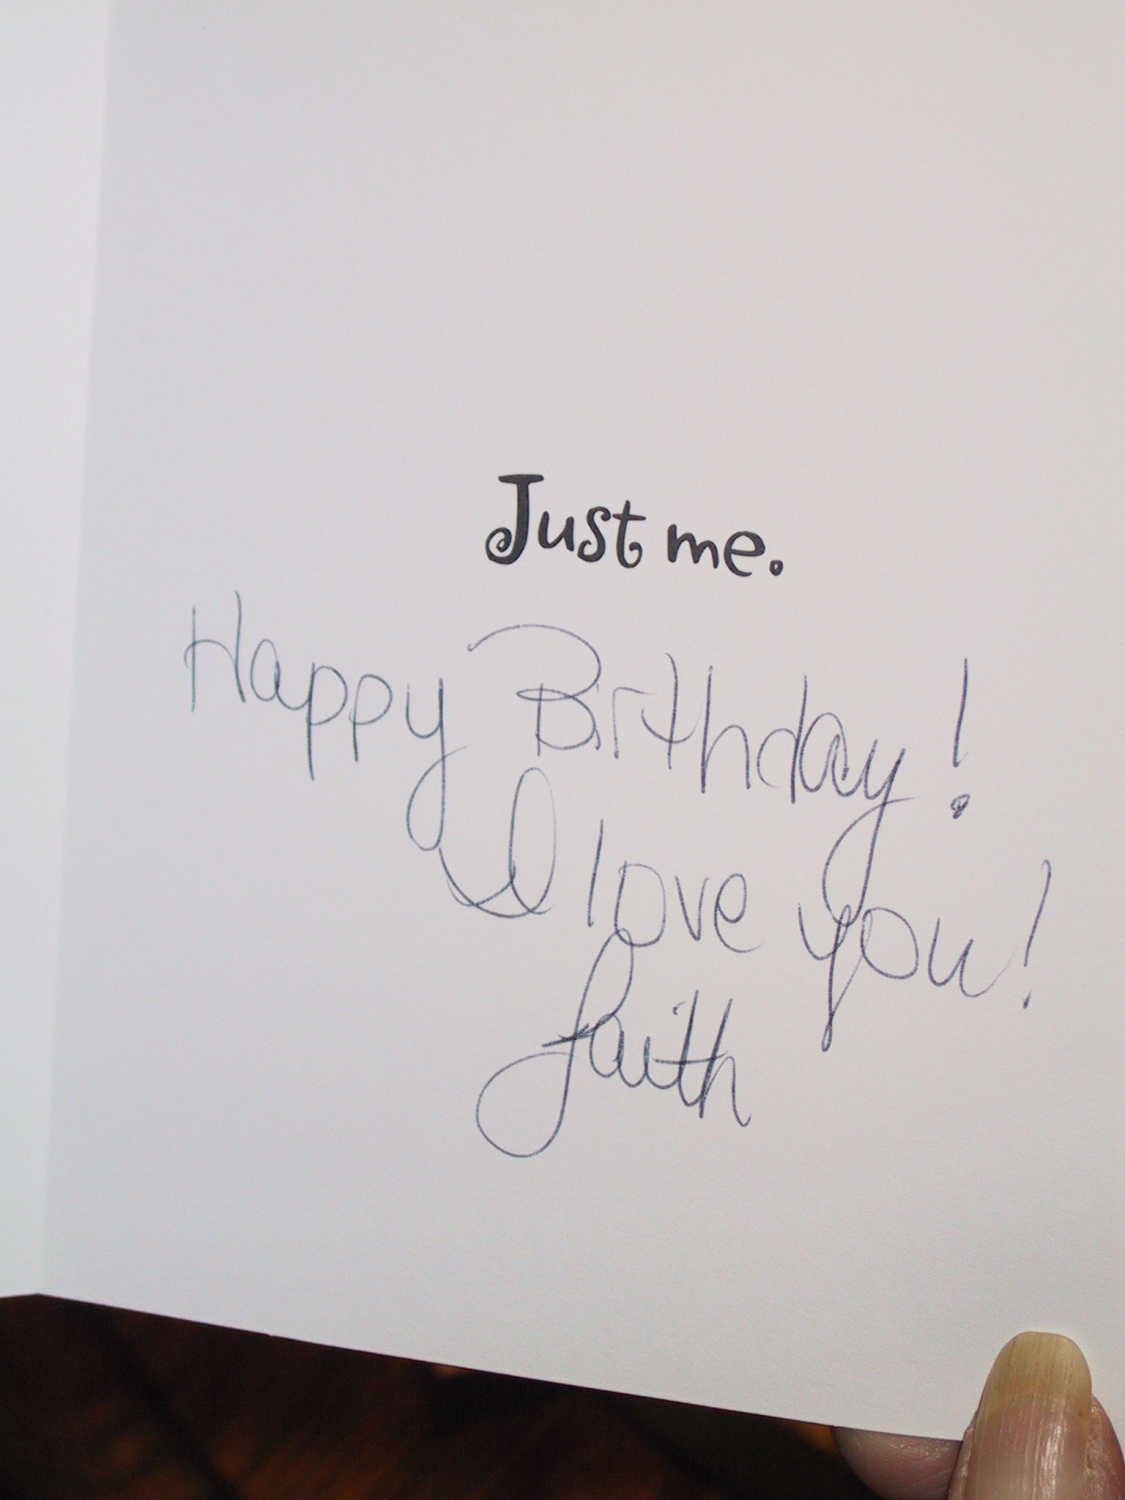 Just me.
Happy Birthday!
I love you!
Faith